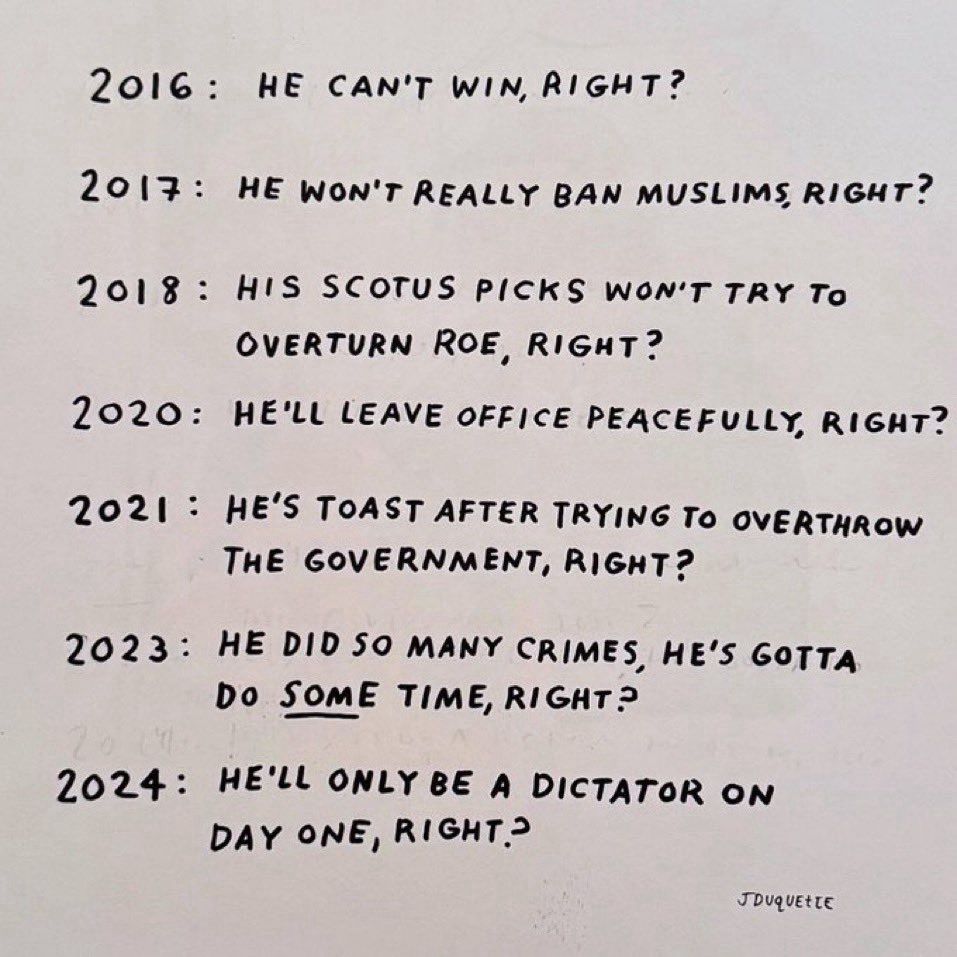 2016: HE CAN'T WIN, RIGHT?
2017: HE WON'T REALLY BAN MUSLIMS, RIGHT?
2018: HIS SCOTUS PICKS WON'T TRY TO
OVERTURN ROE, RIGHT?
2020: HE'LL LEAVE OFFICE PEACEFULLY, RIGHT?
2021: HE'S TOAST AFTER TRYING TO OVERTHROW
THE GOVERNMENT, RIGHT?
2023: HE DID SO MANY CRIMES, HE'S GOTTA
DO SOME TIME, RIGHT?
2024: HE'LL ONLY BE A DICTATOR ON
DAY ONE, RIGHT?
JDUQUETTE